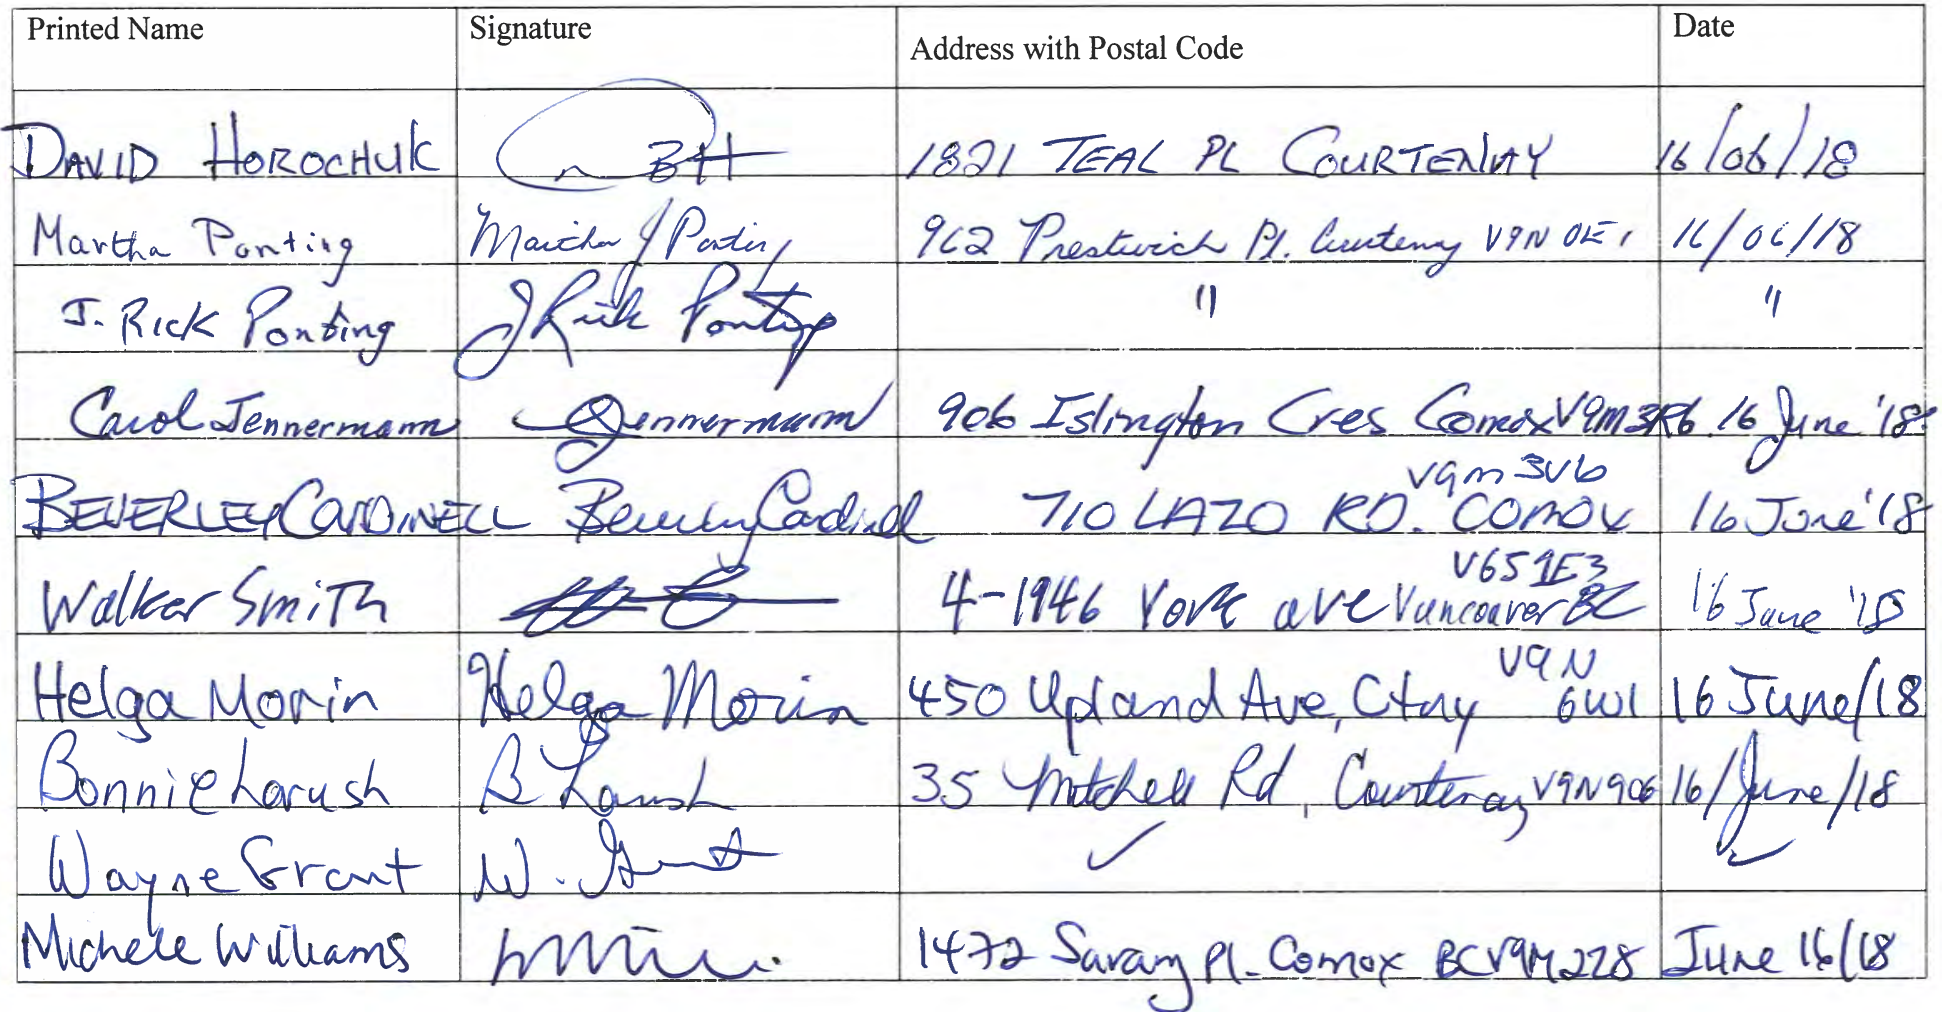 Printed Name Signature Address with Postal Code Date
DAVID HOROCHUK 1821 TEAL PL COURTENAY 16/06/18
Martha Ponting Martha J Ponting 962 Prestwich Pl. Courtenay V9N 0E1 16/06/18
J. Rick Ponting J Rick Ponting " "
Carol Jennermann CJennermann 906 Islington Cres Comox V9M3R6 16 June '18
BEVERLEY CARDINELL Beverley Cardinell 710 LAZO RD. COMOX V9M 3V6 16 June '18
Walker Smith 4-1946 York ave Vancouver BC V6S1E3 16 June '18
Helga Morin Helga Morin 450 Upland Ave, Ctny V9N 6W1 16 June/18
Bonnie Larush B Larush 35 Mitchell Rd, Courtenay V9N9C6 16/June/18
Wayne Grant W. Grant ✓ ✓
Michele Williams 1472 Savary Pl. Comox BC V9M 2Z8 June 16/18